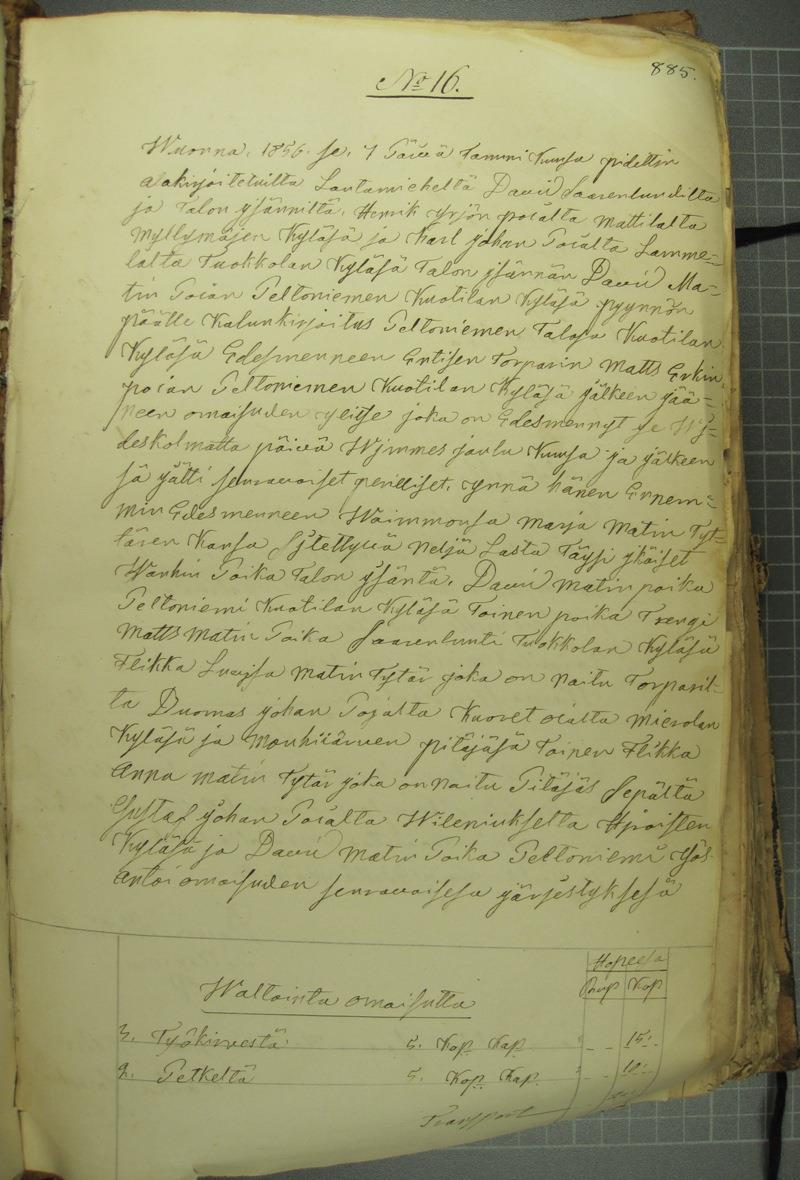 885.
No 16.
Wuonna. 1856. se. 7 Päivä Tammi Kuusa pidettin
alakirjoitetuilta Lautamieheltä Davíd Saarenlundilta
ja Talon ysänniltä, Henrik yrjön poialta Mattilalta
Myllymäjen Kyläsä ja Karl johan Poialta Lamme=
lalta Tuokkolan Kyläsä Talon jsännän Davíd Ma=
tin Poian Peltoniemen Kuotilan Kyläsä pyynnön
päälle Kalunkirjoitus Peltoniemen Talosa Kuotilan
Kyläsä Edesmenneen Entisen Torparin Matts Erkin
poian Peltoniemen Kuotilan Kyläsä jälkeen jää=
neen omaisuden ylitse joka on Edesmennyt se
deskolmatta päivä Wjimmes joulu Kuusa ja jälkeen
sä jätti seuraavaiset perilliset, ynnä hänen Ennem=
min Edesmenneen Waimmonsa Marja Matin Tyt=
tären Kansa Sijtettyvä neljä Lasta Täysi jkäiset
Wanhin Poika Talon ysäntä. Davíd Matin poika
Peltoniemi Kuotilan Kyläsä Toinen poika Trengi
Matts Matin Poika Saarenlunti Tuokkolan Kyläsä
Flikka Lovisa Matin Tytär joka on Naitu Torparil=
ta Duomas johan Pojalta Mierolan
Kyläsä ja Mouhijärven pitäjäsä Toinen Flikka
Anna Matin Tytär joka on naitu Pitäjäs Sepältä
Gustaf johan Poialta Wileniukselta
Kyläsä ja Davíd Matin Poika Peltoniemi ylös
antoi omaisuden seuraavaisesa järjestyksesä
Hopeesa
Rup Kop
Waltointa omaisutta
3. Työkirvestä 5. Kop Kap - - 15:
2. Petkeltä 5. Kop. Kap. - - 10:
Transport